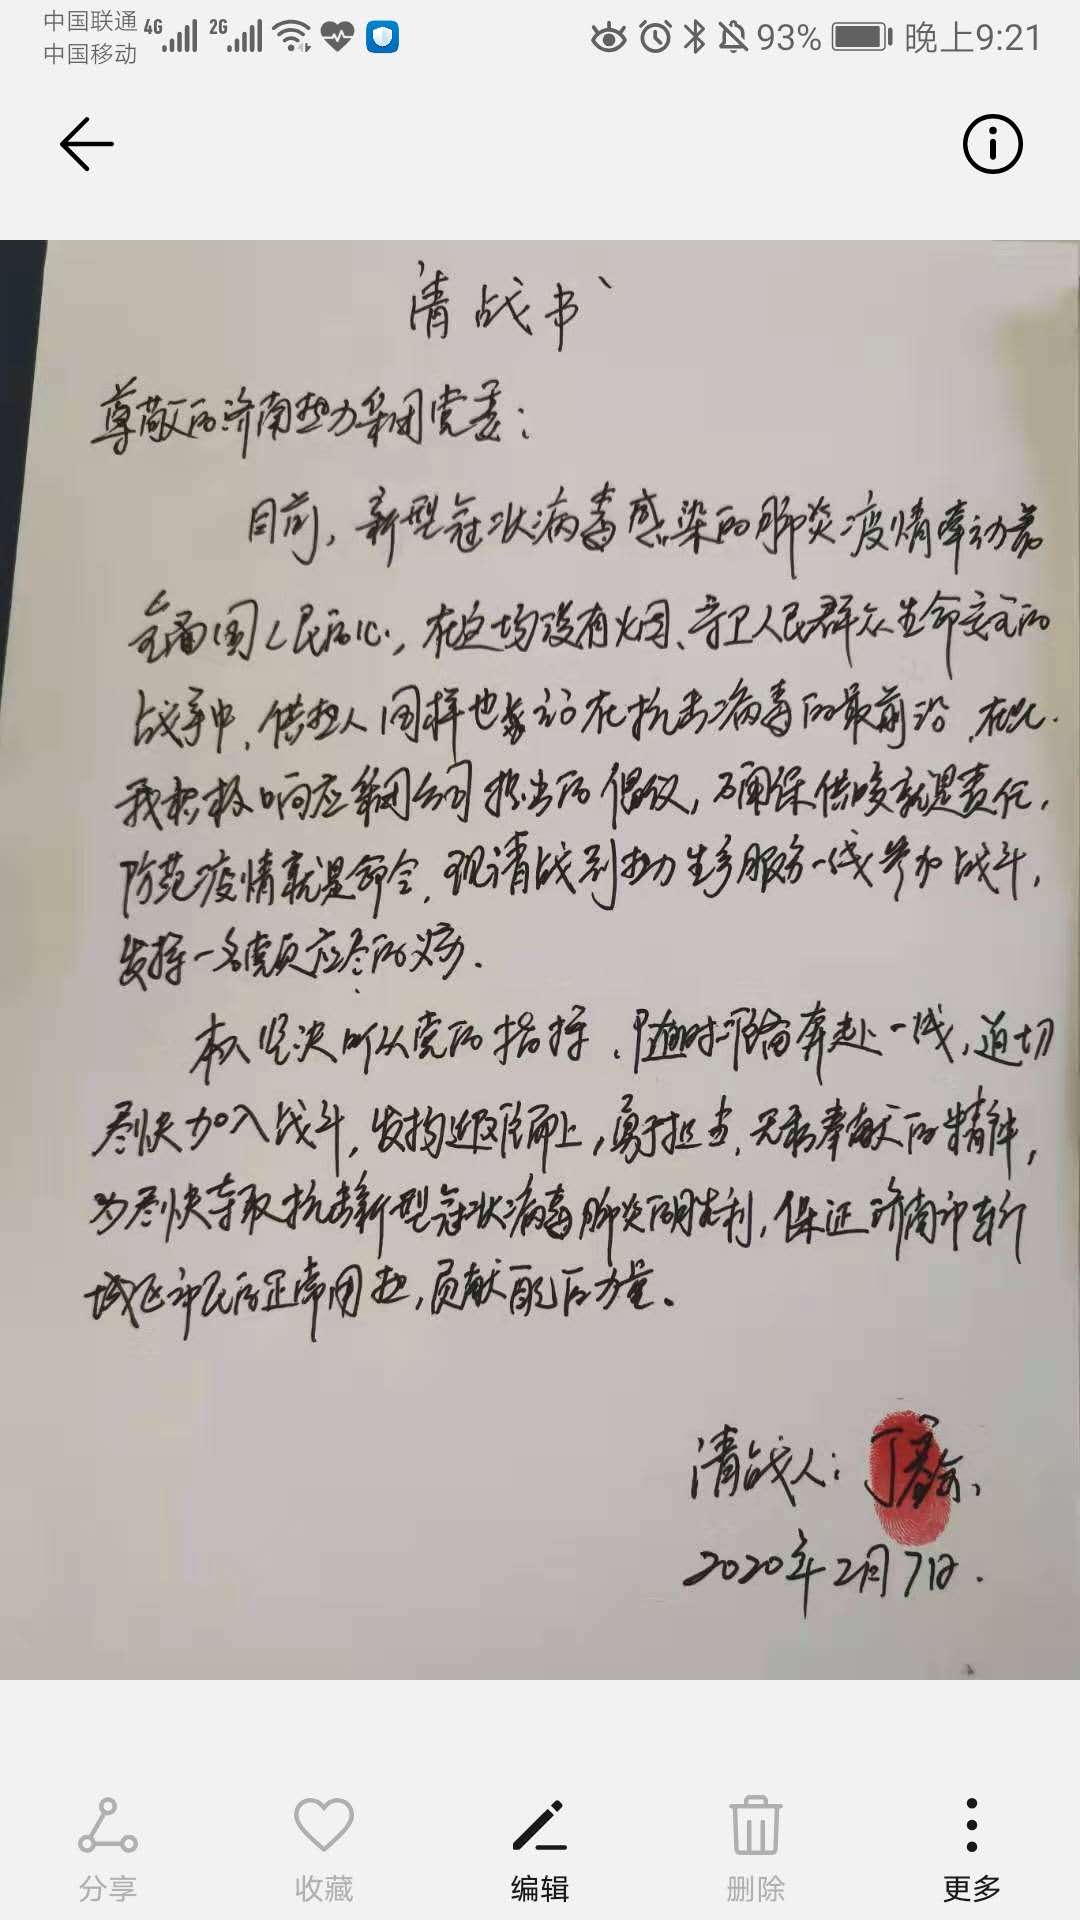 中国联通 4G 2G 93% 晚上9:21
中国移动
请战书
尊敬的济南热力集团党委：
目前，新型冠状病毒感染的肺炎疫情牵动着
全国人民的心，在这场没有火焰、守卫人民群众生命安全的
战争中，供热人同样也在抗击病毒的最前沿，在此
我积极响应集团公司担当的倡议，确保供暖就是责任，
防范疫情就是命令，现请战到热力生产服务一线参加战斗，
发挥一名党员应尽的义务．
本人坚决听从党的指挥，随时准备奔赴一线，迫切
尽快加入战斗，发扬迎难而上，勇于担当，无私奉献的精神，
为尽快夺取抗击新型冠状病毒肺炎的胜利，保证济南市东新
城区市民的正常用热，贡献自己的力量。
请战人：丁
2020年2月7日．
分享 收藏 编辑 删除 更多